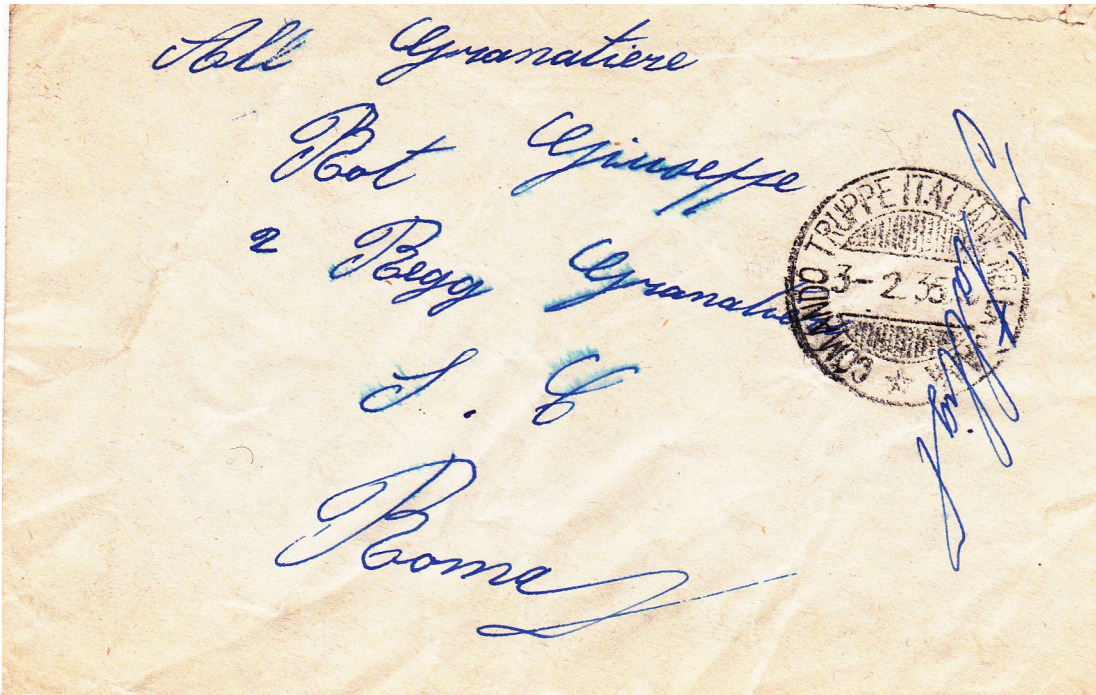 All Granatiere
Rot Giuseppe
2 Regg Granatieri
S. C
Roma
COMANDO TRUPPE ITALIANE NELLA SAAR
3-2.35